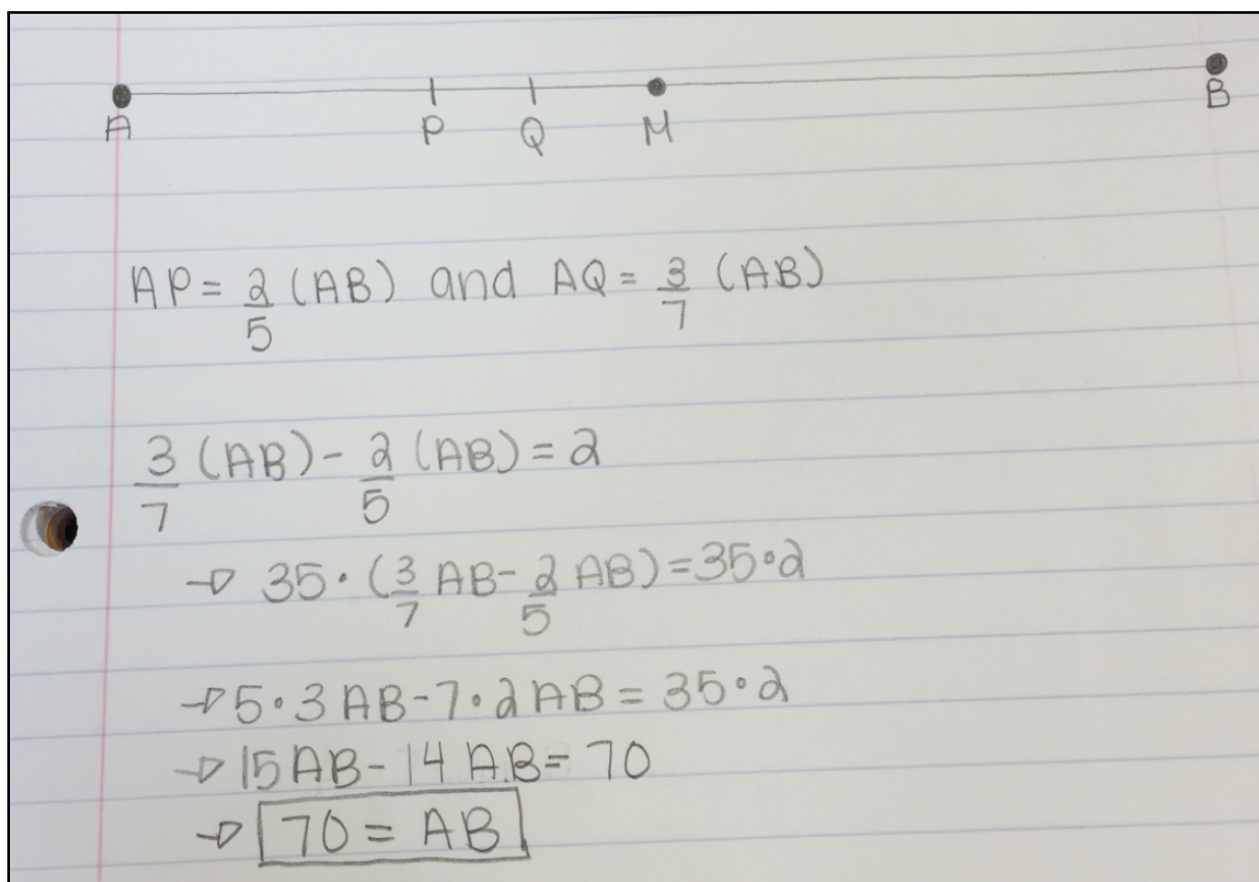 A P Q M B
AP = 2/5 (AB) and AQ = 3/7 (AB)
3/7 (AB) - 2/5 (AB) = 2
→ 35 · (3/7 AB - 2/5 AB) = 35 · 2
→ 5 · 3 AB - 7 · 2 AB = 35 · 2
→ 15 AB - 14 AB = 70
→ 70 = AB